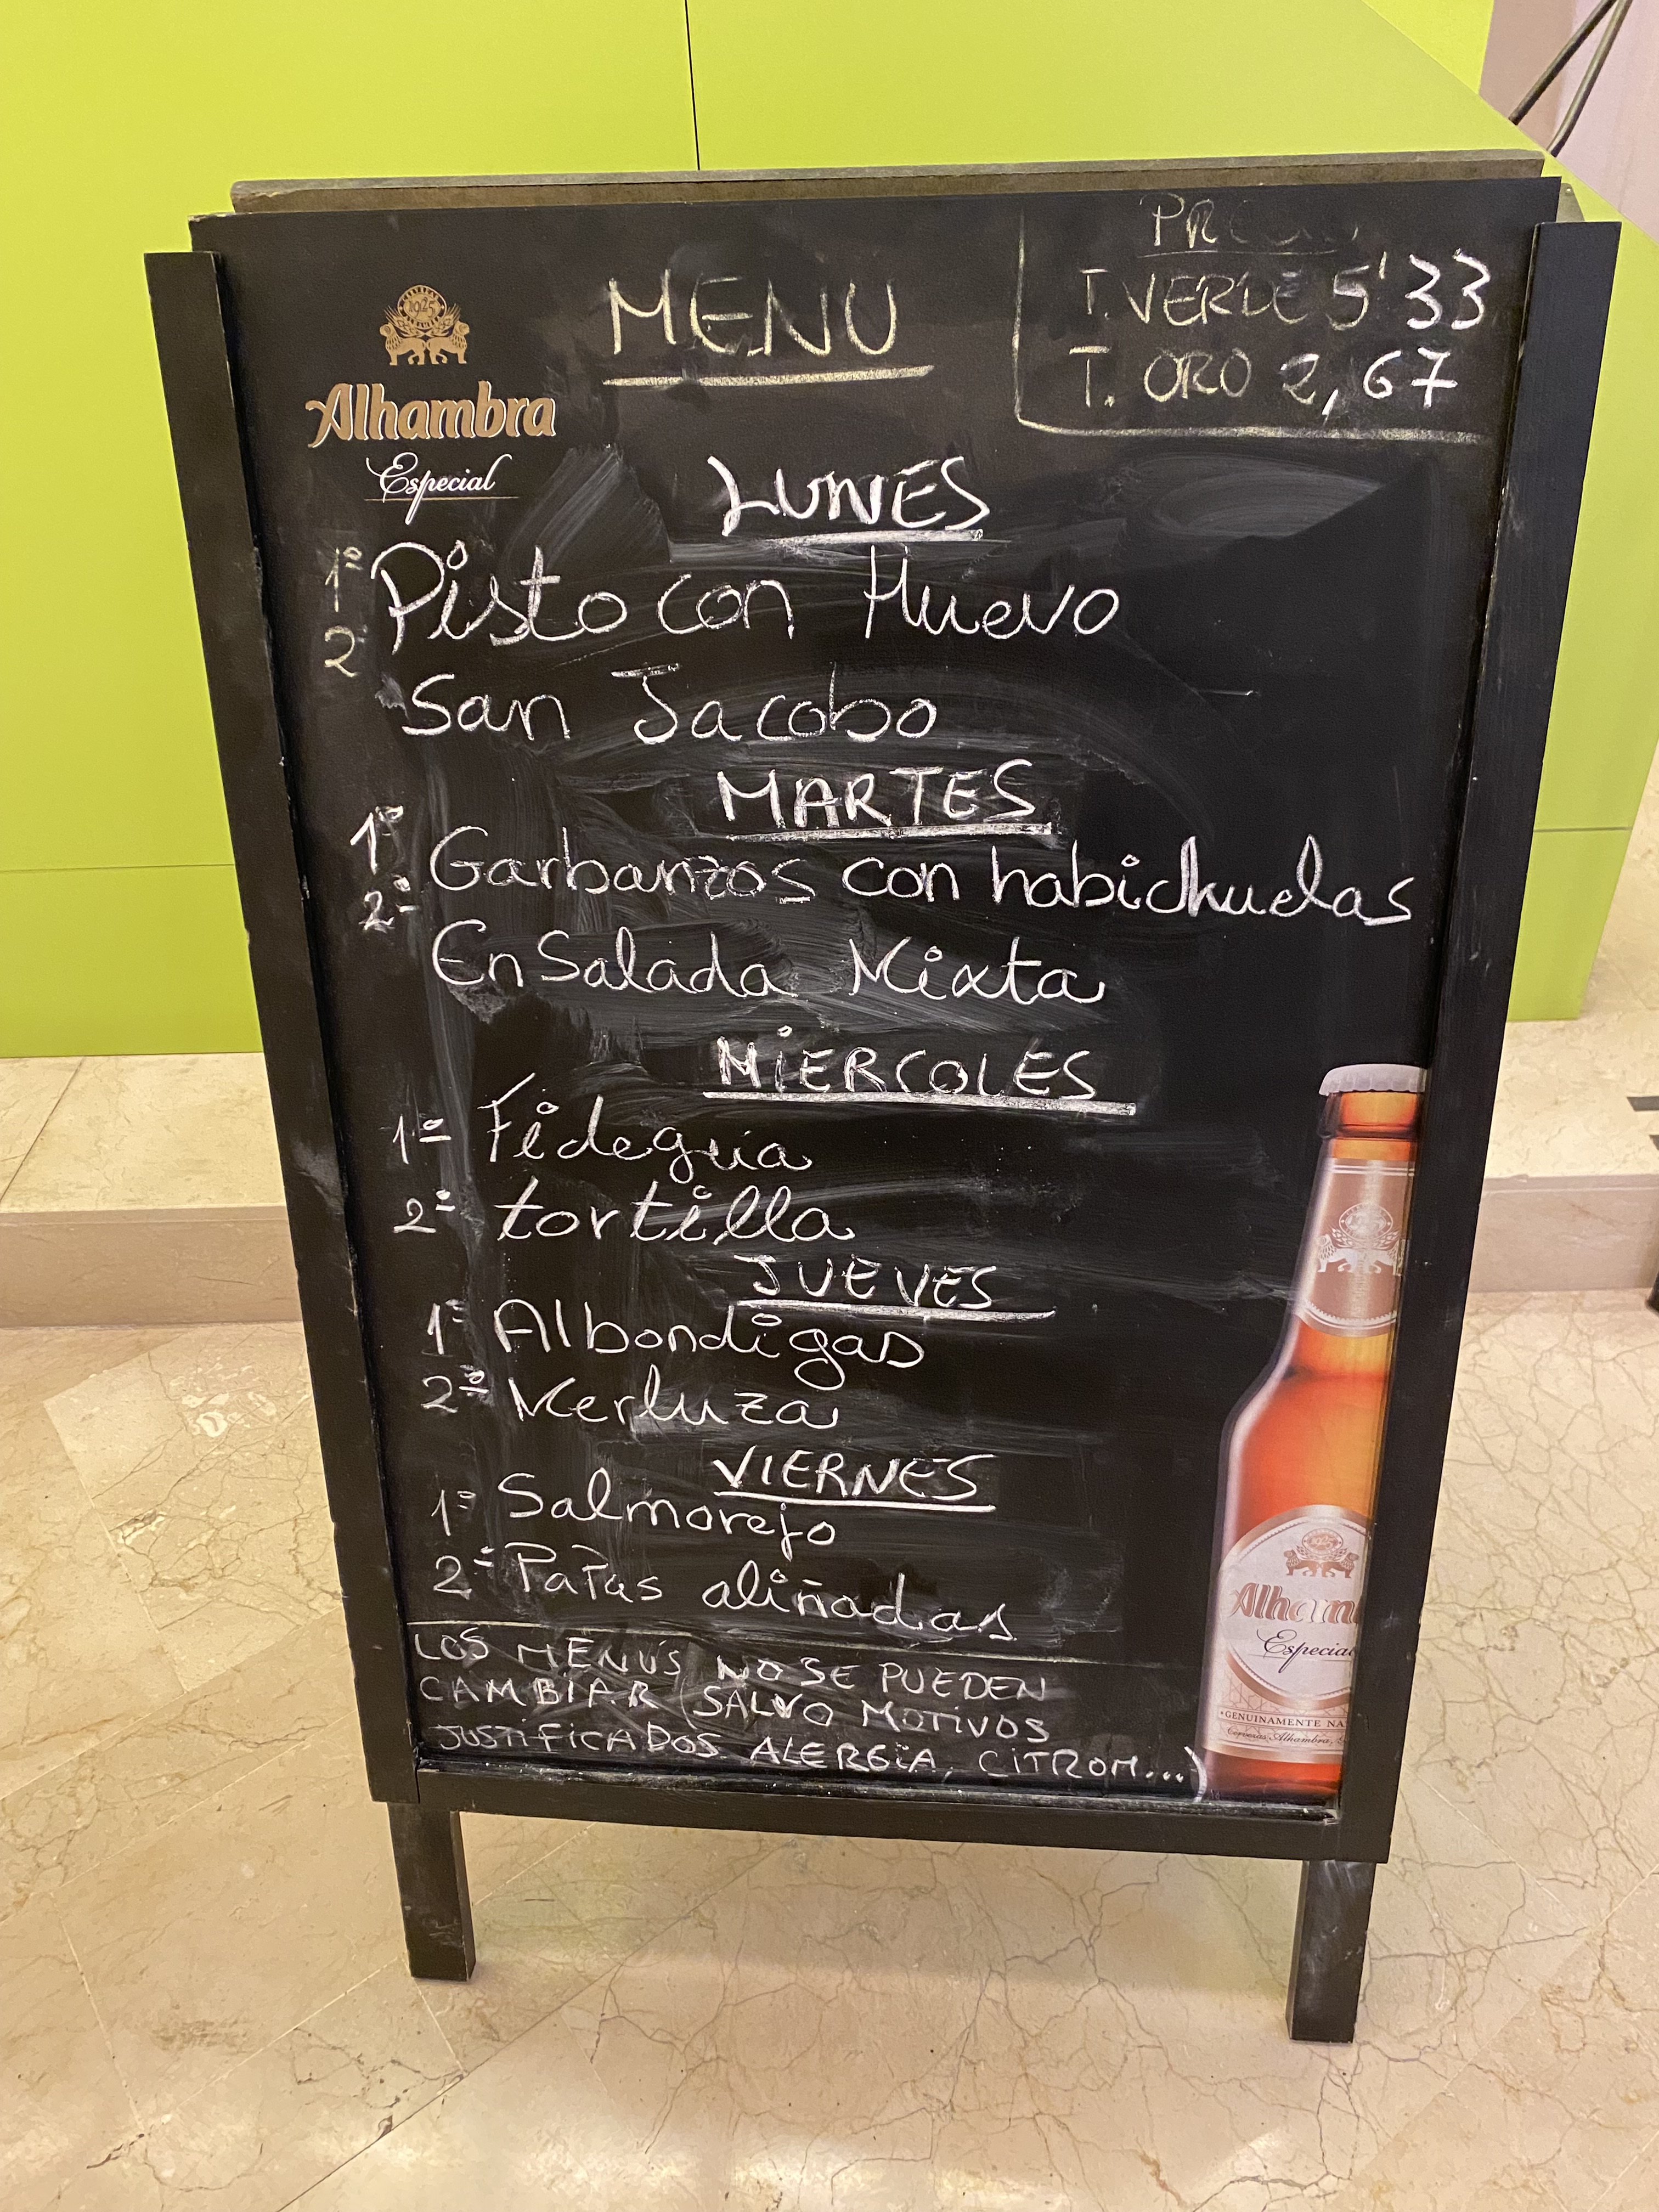 T. VERDE 5'33
T. ORO 2,67
MENU
1925
Alhambra
Especial
LUNES
1º Pisto con Huevo
2º San Jacobo
MARTES
1º Garbanzos con habichuelas
2º Ensalada Mixta
MIERCOLES
1º Fidegua
2º tortilla
JUEVES
1º Albondigas
2º Merluza
VIERNES
1º Salmorejo
2º Papas aliñadas
LOS MENÚS NO SE PUEDEN
CAMBIAR (SALVO MOTIVOS
JUSTIFICADOS ALERGIA, CITROM...)
Alham
Especial
GENUINAMENTE NA
Cervezas Alhambra,